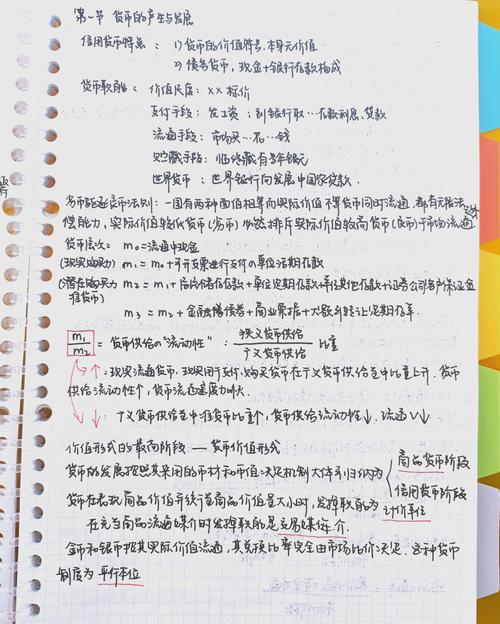 第一节 货币的产生与发展
信用货币特点： 1) 货币的价值符号，本身无价值
2) 债务货币，现金+银行存款构成
货币职能： 价值尺度：××标价
支付手段：发工资；到银行取…存款利息、贷款
流通手段：市场买…花…钱
贮藏手段：临终藏有多年银元
世界货币：世界银行向发展中国家贷款.
劣币驱逐良币法则：一国有两种面值相等而实际价值不等货币同时流通，都有无限法
偿能力，实际价值较低货币(劣币)必然排斥实际价值较高货币(良币)于市场流通
货币层次： m₀=流通中现金
(现实购买力) m₁=m₀+可开支票进行支付的单位活期存款
(潜在购买力) m₂=m₁+居民储蓄存款+单位定期存款+单位其他存款+证券公司客户保证金
准货币)
m₃=m₂+金融债券+商业票据+大额可转让定期存单.
m₁/m₂=货币供给的"流动性"：狭义货币供给/广义货币供给 比重
↑：现实流通货币，现实用于支付、购买货币在广义货币供给总中比重上升，货币
供给流动性↑，货币流通速度加大.
↓：广义货币供给总中准货币比重个，货币供给流动性↓，流通V↓
价值形式的最高阶段 — 货币价值形式
货币的发展按照其采用的币材和币值决定机制大体可归纳为 商品货币阶段
信用货币阶段
货币在表现商品价值并衡量商品价值量大小时，发挥职能为 计价单位
在充当商品流通媒介时发挥职能是交易媒介.
金币和银币按其实际价值流通，其兑换比率完全由市场比价决定，这种货币
制度为 平行本位